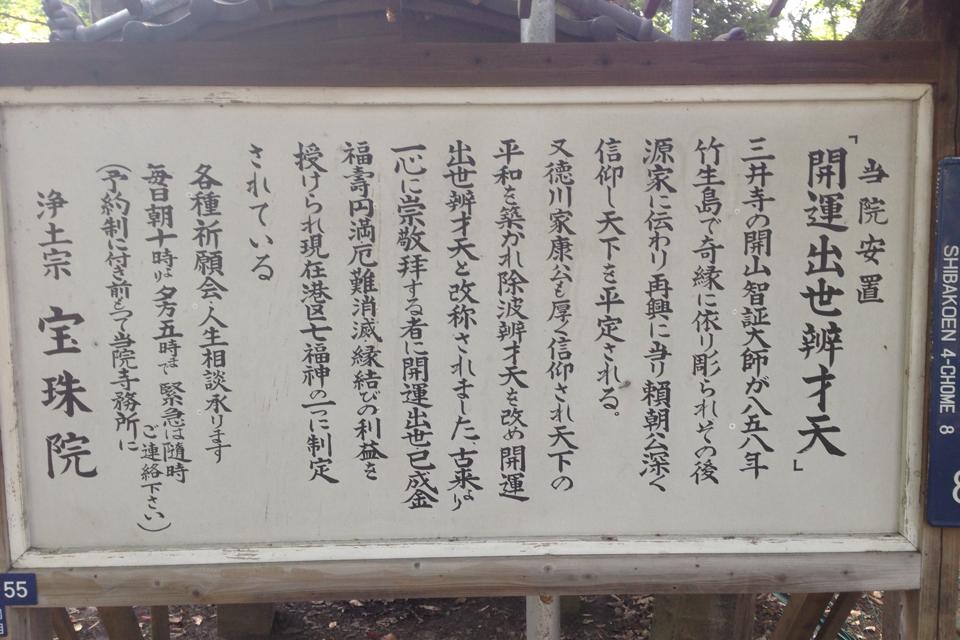 当院安置
「開運出世辨才天」
三井寺の開山智証大師が八五八年
竹生島で奇縁に依り彫られその後
源家に伝わり再興に当り頼朝公深く
信仰し天下を平定される。
又徳川家康公も厚く信仰され天下の
平和を築かれ除波辨才天を改め開運
出世辨才天と改称されました、古来より
一心に崇敬拝する者に開運出世・已成金
福寿円満厄難消滅縁結びの利益を
授けられ現在港区七福神の一つに制定
されている
各種祈願会・人生相談承ります
毎日朝十時より夕方五時まで 緊急は随時
ご連絡下さい)
(予約制に付き前もって当院寺務所に
浄土宗 宝珠院
SHIBAKOEN 4-CHOME 8
8
55